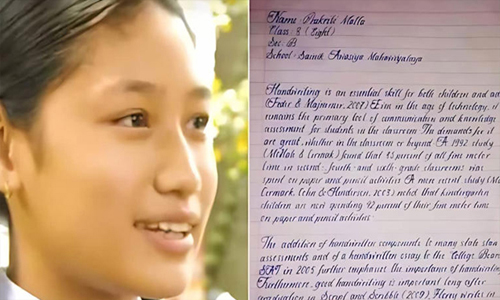 Name: Prakriti Malla
Class: 8 (Eight)
Sec: B
School: Sainik Awasiya Mahavidyalaya
Handwriting is an essential skill for both children and ad
(Feder & Majnemer, 2007) Even in the age of technology, it
remains the primary tool of communication and knowledge
assessment for students in the classroom. The demands for it
are great, whether in the classroom or beyond. A 1992 study
(McHale & Cermak) found that 85 percent of all fine motor
time in second- fourth- and sixth-grade classrooms was
spent on paper and pencil activities. A more recent study (Ma
Cermark, Cohn & Henderson, 2003) noted that kindergarten
children are now spending 42 percent of their fine motor time
on paper and pencil activities.
The addition of handwritten components to many state stan
assessments and of a handwritten essay to the College Boar
SAT in 2005 further emphasize the importance of handwriti
Furthermore, good handwriting is important long after
graduation. In Script and Scribble (2009), Florey writes